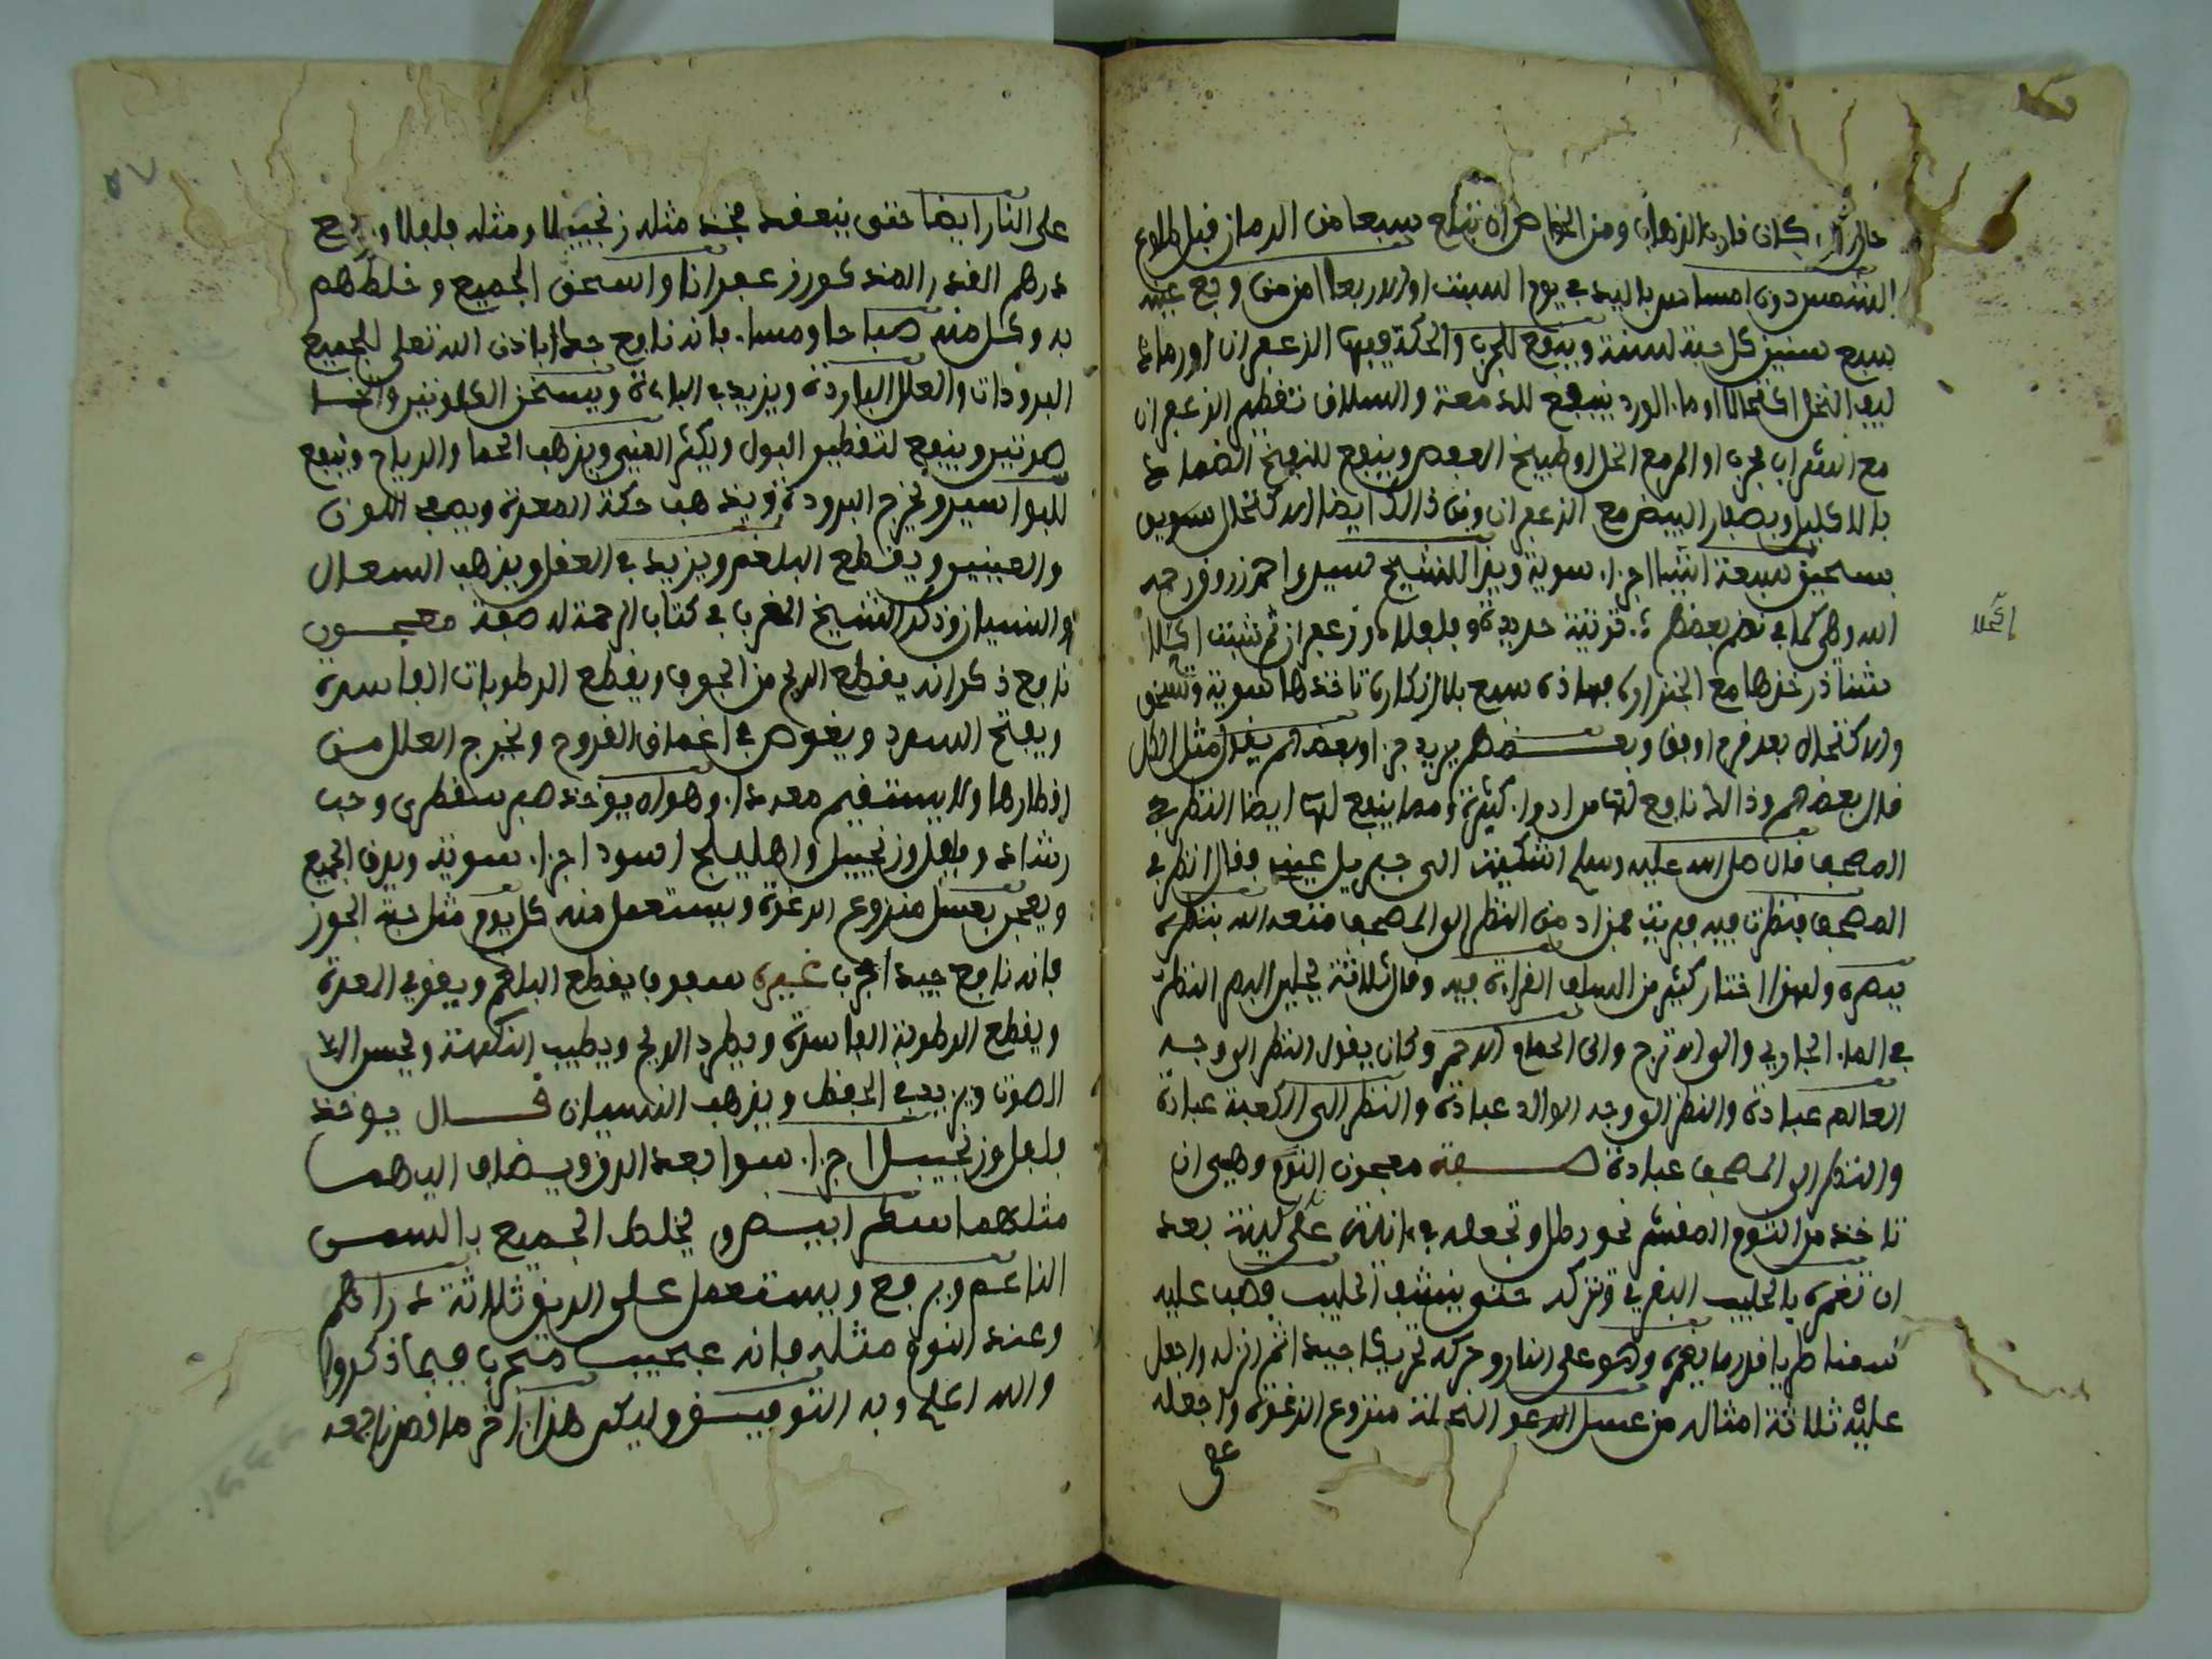 خالد ان كان فارق الذهاب ومن الخواص ان تبتلع سبعا من الرمان قبل طلوع
الشمس دون امساس باليد في يوم السبت او الاربعا امن من وجع عينه
سبع سنين كل حبة لسنة وينفع للجرب والحكة فيها الزعفران او رماد
ليف النخل اكتحالا او ماء الورد ينفع للدمعة والسلاق تقطير الزعفران
مع الشراب مجرب او المر مع الخل او طبيخ العفص وينفع للنفخ الضماد
بالاكليل وبصفار البيض مع الزعفران ومن ذالك ايضا الاكتحال سويق
بسحيق سبعة اشيا اجزاء سوية ويذا للشيخ سيدي احمد زروق رحمه
الله وهي كما في نظم بعضهم توتية حديدة وفلفلا وزعفران ثم شبت اكحلا
شناذر خذها مع الخنزار فهاذه سبع بلا انكار تاخذها سوية وتسحق
والاكتحال بعد فرح اوفق وبعضهم يزيد جزا وبعضهم يقول مثل الكل
قال بعضهم وذالك نافع لها من ادواء كثيرة ومما ينفع لها ايضا النظر في
المصحف قال صلى الله عليه وسلم اشتكيت الى جبريل عيني فقال انظر في
المصحف فنظرت فيه فبريت فمن ادمن النظر الى المصحف متعه الله بنظره
ببصره ولهذا اختار كثير من السلف القراءة فيه وقال ثلاثة يجلين البصر النظر
في الماء الجاري والى الاترج والى الحمام الاحمر وكان يقول النظر الى وجه
العالم عبادة والنظر الى وجه الوالد عبادة والنظر الى الكعبة عبادة
والنظر الى المصحف عبادة صفة معجون الثوم وهي ان
تاخذ من الثوم المقشر نحو رطل وتجعله في انية على لينة بعد
ان تغمره بالحليب البقري وتتركه حتى ينشف الحليب وصب عليه
سمنا طريا قدر ما يغمره وهو على النار وحركه تحريكا جيدا ثم انزله واجعل
عليه ثلاثة امثاله من عسل النحلة منزوع الرغوة واجعله
على
اكحلا
على النار ايضا حتى ينعقد فخذ مثله زنجبيلا ومثله فلفلا وربع
درهم القدر المذكور زعفرانا واسحق الجميع وخلطهم
به وكل منه صباحا ومساء فانه نافع جدا باذن الله تعلى لجميع
البرودات والعلل الباردة ويزيد في الباءة ويسخن الكلوتين والخا
صرتين وينفع لتقطير البول ويكثر المني ويذهب الحما والرياح وينفع
للبواسير ويخرج البرودة ويذهب حكة المعدة ويصفي اللون
والعينين ويقطع البلغم ويزيد في العقل ويذهب السعال
والنسيان وذكر الشيخ المغربي في كتاب الرحمة له صفة معجون
نافع ذكر انه يقطع الريح من الجوف ويقطع الرطوبات الفاسدة
ويفتح السدد ويغوص في اعماق القروح ويخرج العلل من
اقطارها ولا يستقيم معه داء وهو ان يوخذ صبر سقطري وحب
رشاد وفلفل وزنجبيل واهليلج اسود اجزاء سوية ويدق الجميع
ويعجن بعسل منزوع الرغوة ويستعمل منه كل يوم مثل حبة الجوز
فانه نافع جيد مجرب غيره سفوف يقطع البلغم ويقوي المعدة
ويقطع الرطوبة الفاسدة ويطرد الريح ويطيب النكهة ويحسن
الصوت ويزيد في الحفظ ويذهب النسيان قال يوخذ
فلفل وزنجبيل اجزاء سوا بعد الدق ويضاف اليهما
مثلهما سكر ابيض ويخلط الجميع بالسمن
الناعم ويرفع ويستعمل على الريق ثلاثة دراهم
وعند النوم مثله فانه عجيب مجرب فيما ذكروا
والله اعلم وبه التوفيق وليكن هذا اخر ما قصدنا جمعه